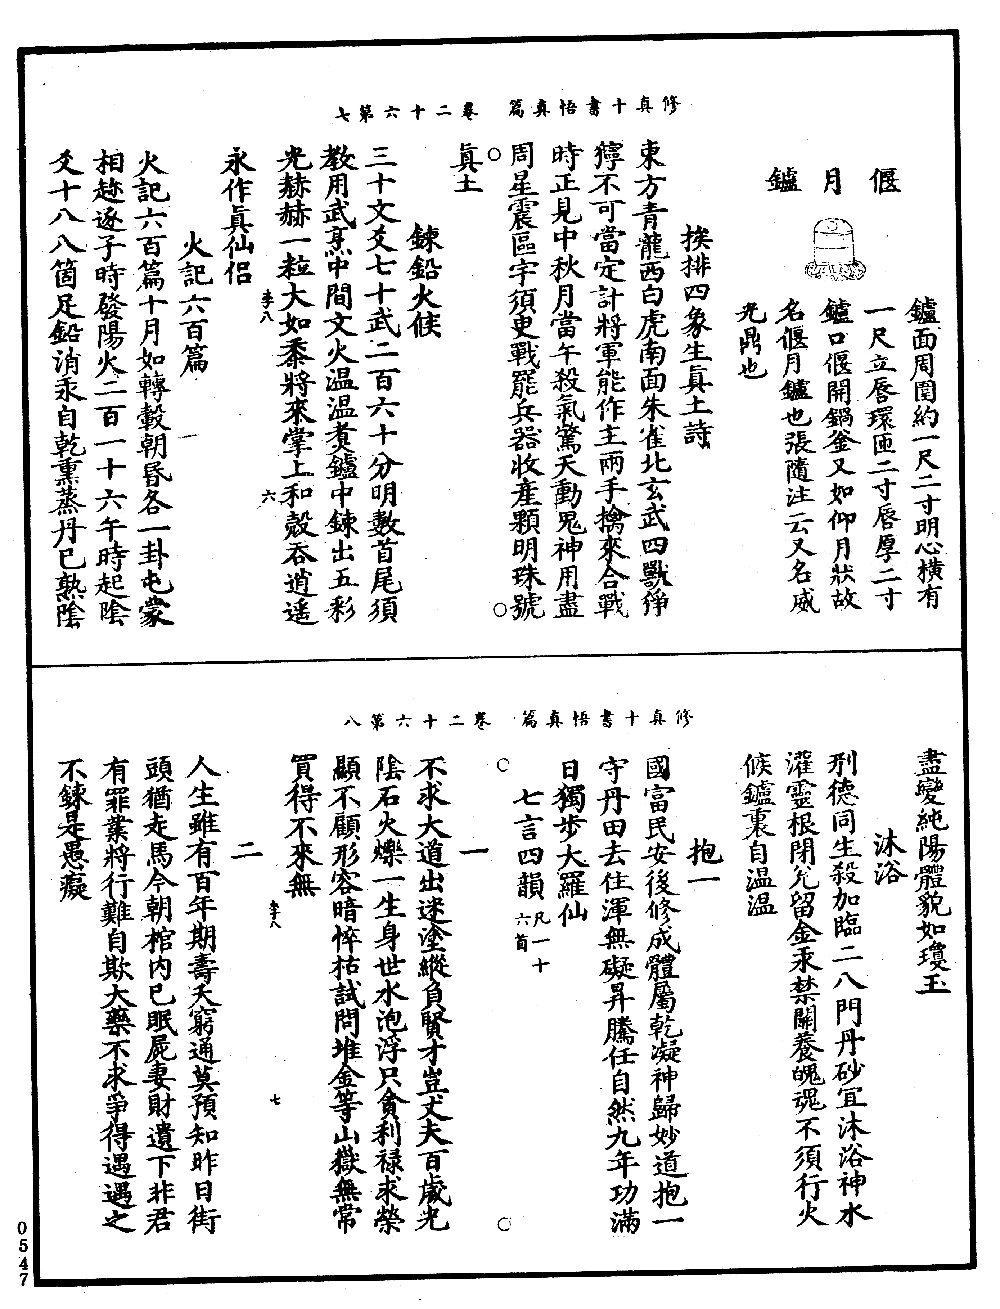 修真十書悟真篇　卷二十六第七
偃月鑪
鑪面周圍約一尺二寸明心橫有
一尺立唇環匝二寸唇厚二寸
鑪口偃開鍋釜又如仰月狀故
名偃月鑪也張隨注云又名威
光鼎也
挨排四象生眞土詩
東方青龍西白虎南面朱雀北玄武四獸猙
獰不可當定計將軍能作主兩手擒來合戰
時正見中秋月當午殺氣驚天動鬼神用盡
周星震區宇須臾戰罷兵器收產顆明珠號
眞土
鍊鉛火候
三十文爻七十武二百六十分明數首尾須
教用武烹中間文火温温煑鑪中鍊出五彩
光赫赫一粒大如黍將來掌上和殼吞逍遥
李八
六
永作眞仙侣
火記六百篇
火記六百篇十月如轉轂朝昏各一卦屯蒙
相趁逐子時發陽火二百一十六午時起陰
爻十八八箇足鉛消汞自乾熏蒸丹已熟陰
修真十書悟真篇　卷二十六第八
盡變純陽體貌如瓊玉
沐浴
刑德同生殺加臨二八門丹砂宜沐浴神水
灌靈根閉兊留金汞禁關養魄魂不須行火
候鑪裏自温温
抱一
國富民安後修成體屬乾凝神歸妙道抱一
守丹田去住渾無礙昇騰任自然九年功滿
日獨步大羅仙
七言四韻凡一十六首
一
不求大道出迷塗縱負賢才豈丈夫百歲光
陰石火爍一生身世水泡浮只貪利禄求榮
顯不顧形容暗悴枯試問堆金等山嶽無常
買得不來無
李八
七
二
人生雖有百年期壽夭窮通莫預知昨日街
頭猶走馬今朝棺内已眠屍妻財遺下非君
有罪業將行難自欺大藥不求爭得遇遇之
不鍊是愚癡
0547